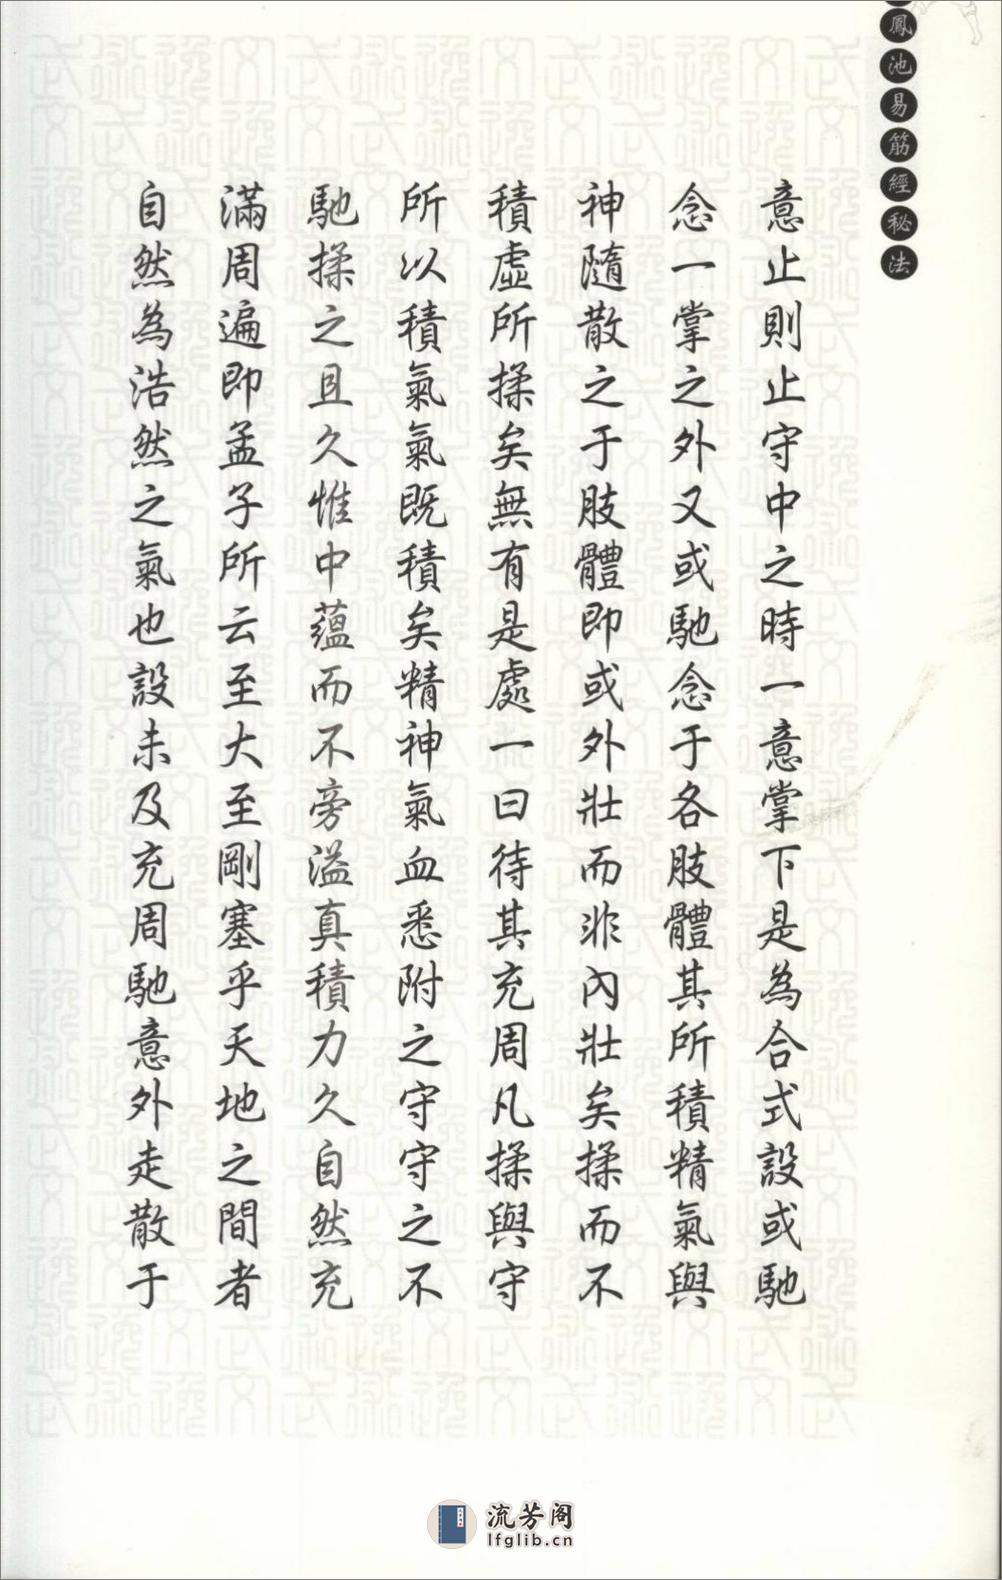 鳳池易筋經秘法
意止則止守中之時一意掌下是為合式設或馳
念一掌之外又或馳念于各肢體其所積精氣與
神隨散之于肢體即或外壯而非內壯矣揉而不
積虛所揉矣無有是處一曰待其充周凡揉與守
所以積氣氣既積矣精神氣血悉附之守守之不
馳揉之且久惟中蘊而不旁溢真積力久自然充
滿周遍即孟子所云至大至剛塞乎天地之間者
自然為浩然之氣也設未及充周馳意外走散于
流芳阁
lfglib.cn